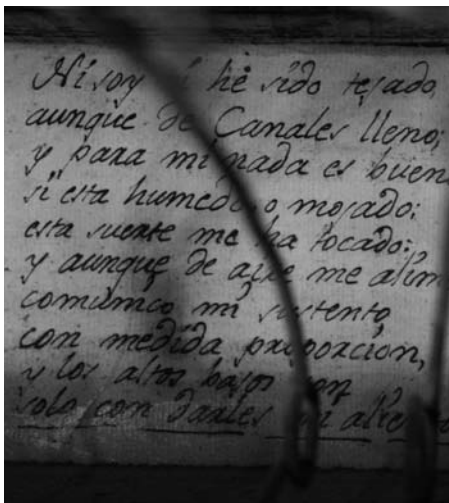 Ni soy ni he sido tejado,
aunque de Canales lleno;
y para mi nada es buen
si esta humedo, o mojado:
esta suerte me ha tocado:
y aunque de aire me alim
comunico mi sustento
con medida proporcion,
y los altos bajos son
solo con darles mi alie